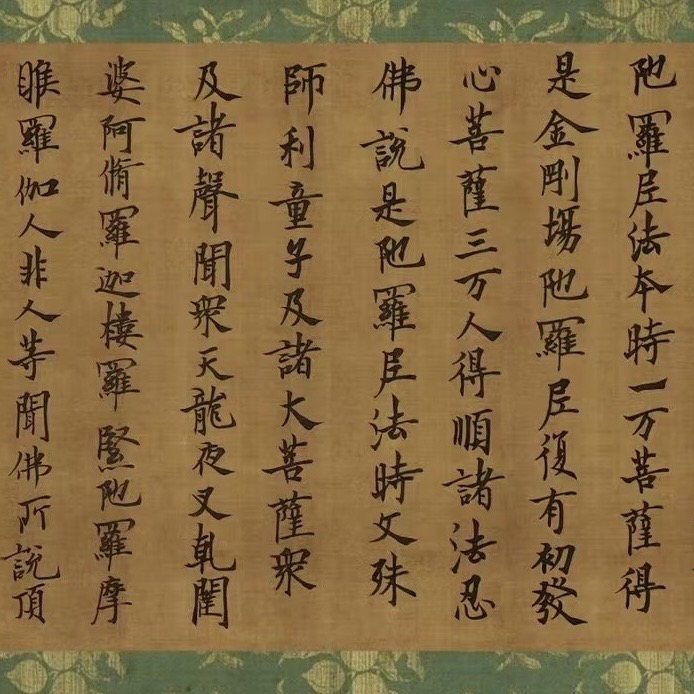 陁羅尼法本時一万菩薩得
是金剛場陁羅尼復有初發
心菩薩三万人得順諸法忍
佛說是陁羅尼法時文殊
師利童子及諸大菩薩衆
及諸聲聞衆天龍夜叉乹闥
婆阿脩羅迦樓羅緊陁羅摩
睺羅伽人非人等聞佛所說頂